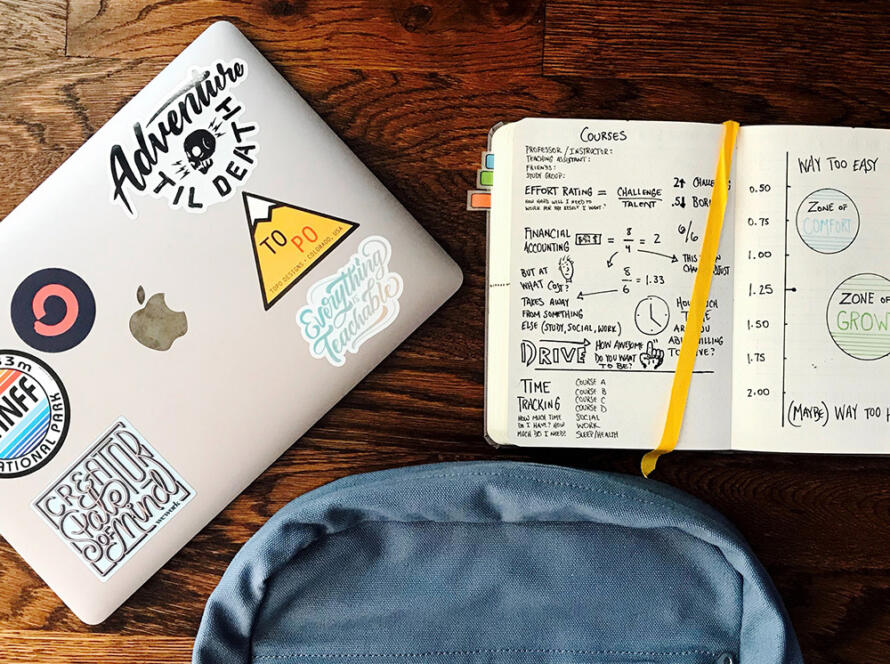 Adventure
'TIL DEATH
TO
PO
TOPO DESIGNS • COLORADO, USA
Everything
is
Teachable
33m
NFF
NATIONAL PARK
CREATOR
State
OF
Mind
COURSES
PROFESSOR / INSTRUCTOR:
TEACHING ASSISTANT:
FRIENDS:
STUDY GROUP:
EFFORT RATING = CHALLENGE
TALENT
HOW HARD WILL I NEED TO
WORK FOR THE RESULT I WANT?
2↑ CHALL
.5↓ BOR
FINANCIAL
ACCOUNTING
= 8
4
= 2
6/6
THIS
CAN ADJUST
BUT AT
WHAT COST?
8
6
= 1.33
TAKES AWAY
FROM SOMETHING
ELSE (STUDY, SOCIAL, WORK)
HOW MUCH
TIME
ARE
YOU
WILLING
TO GIVE?
DRIVE
HOW AWESOME
DO YOU WANT
TO BE?
TIME
TRACKING
HOW MUCH TIME
DO I HAVE? HOW
MUCH DO I NEED?
COURSE A
COURSE B
COURSE C
COURSE D
SOCIAL
WORK
SLEEP/HEALTH
WAY TOO EASY
0.50
0.75
1.00
1.25
1.50
1.75
2.00
ZONE OF
COMFORT
ZONE OF
GROW
(MAYBE) WAY TOO H